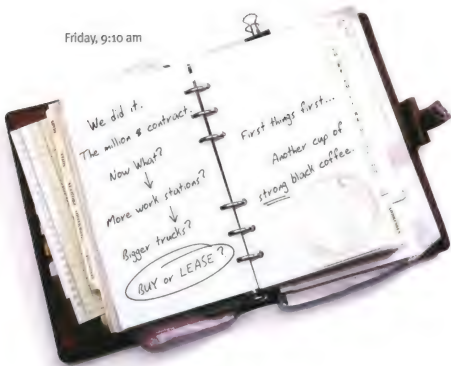 Friday, 9:10 am
We did it.
The million $ contract.
Now What?
More work stations?
Bigger trucks?
BUY or LEASE?
First things first...
Another cup of
strong black coffee.